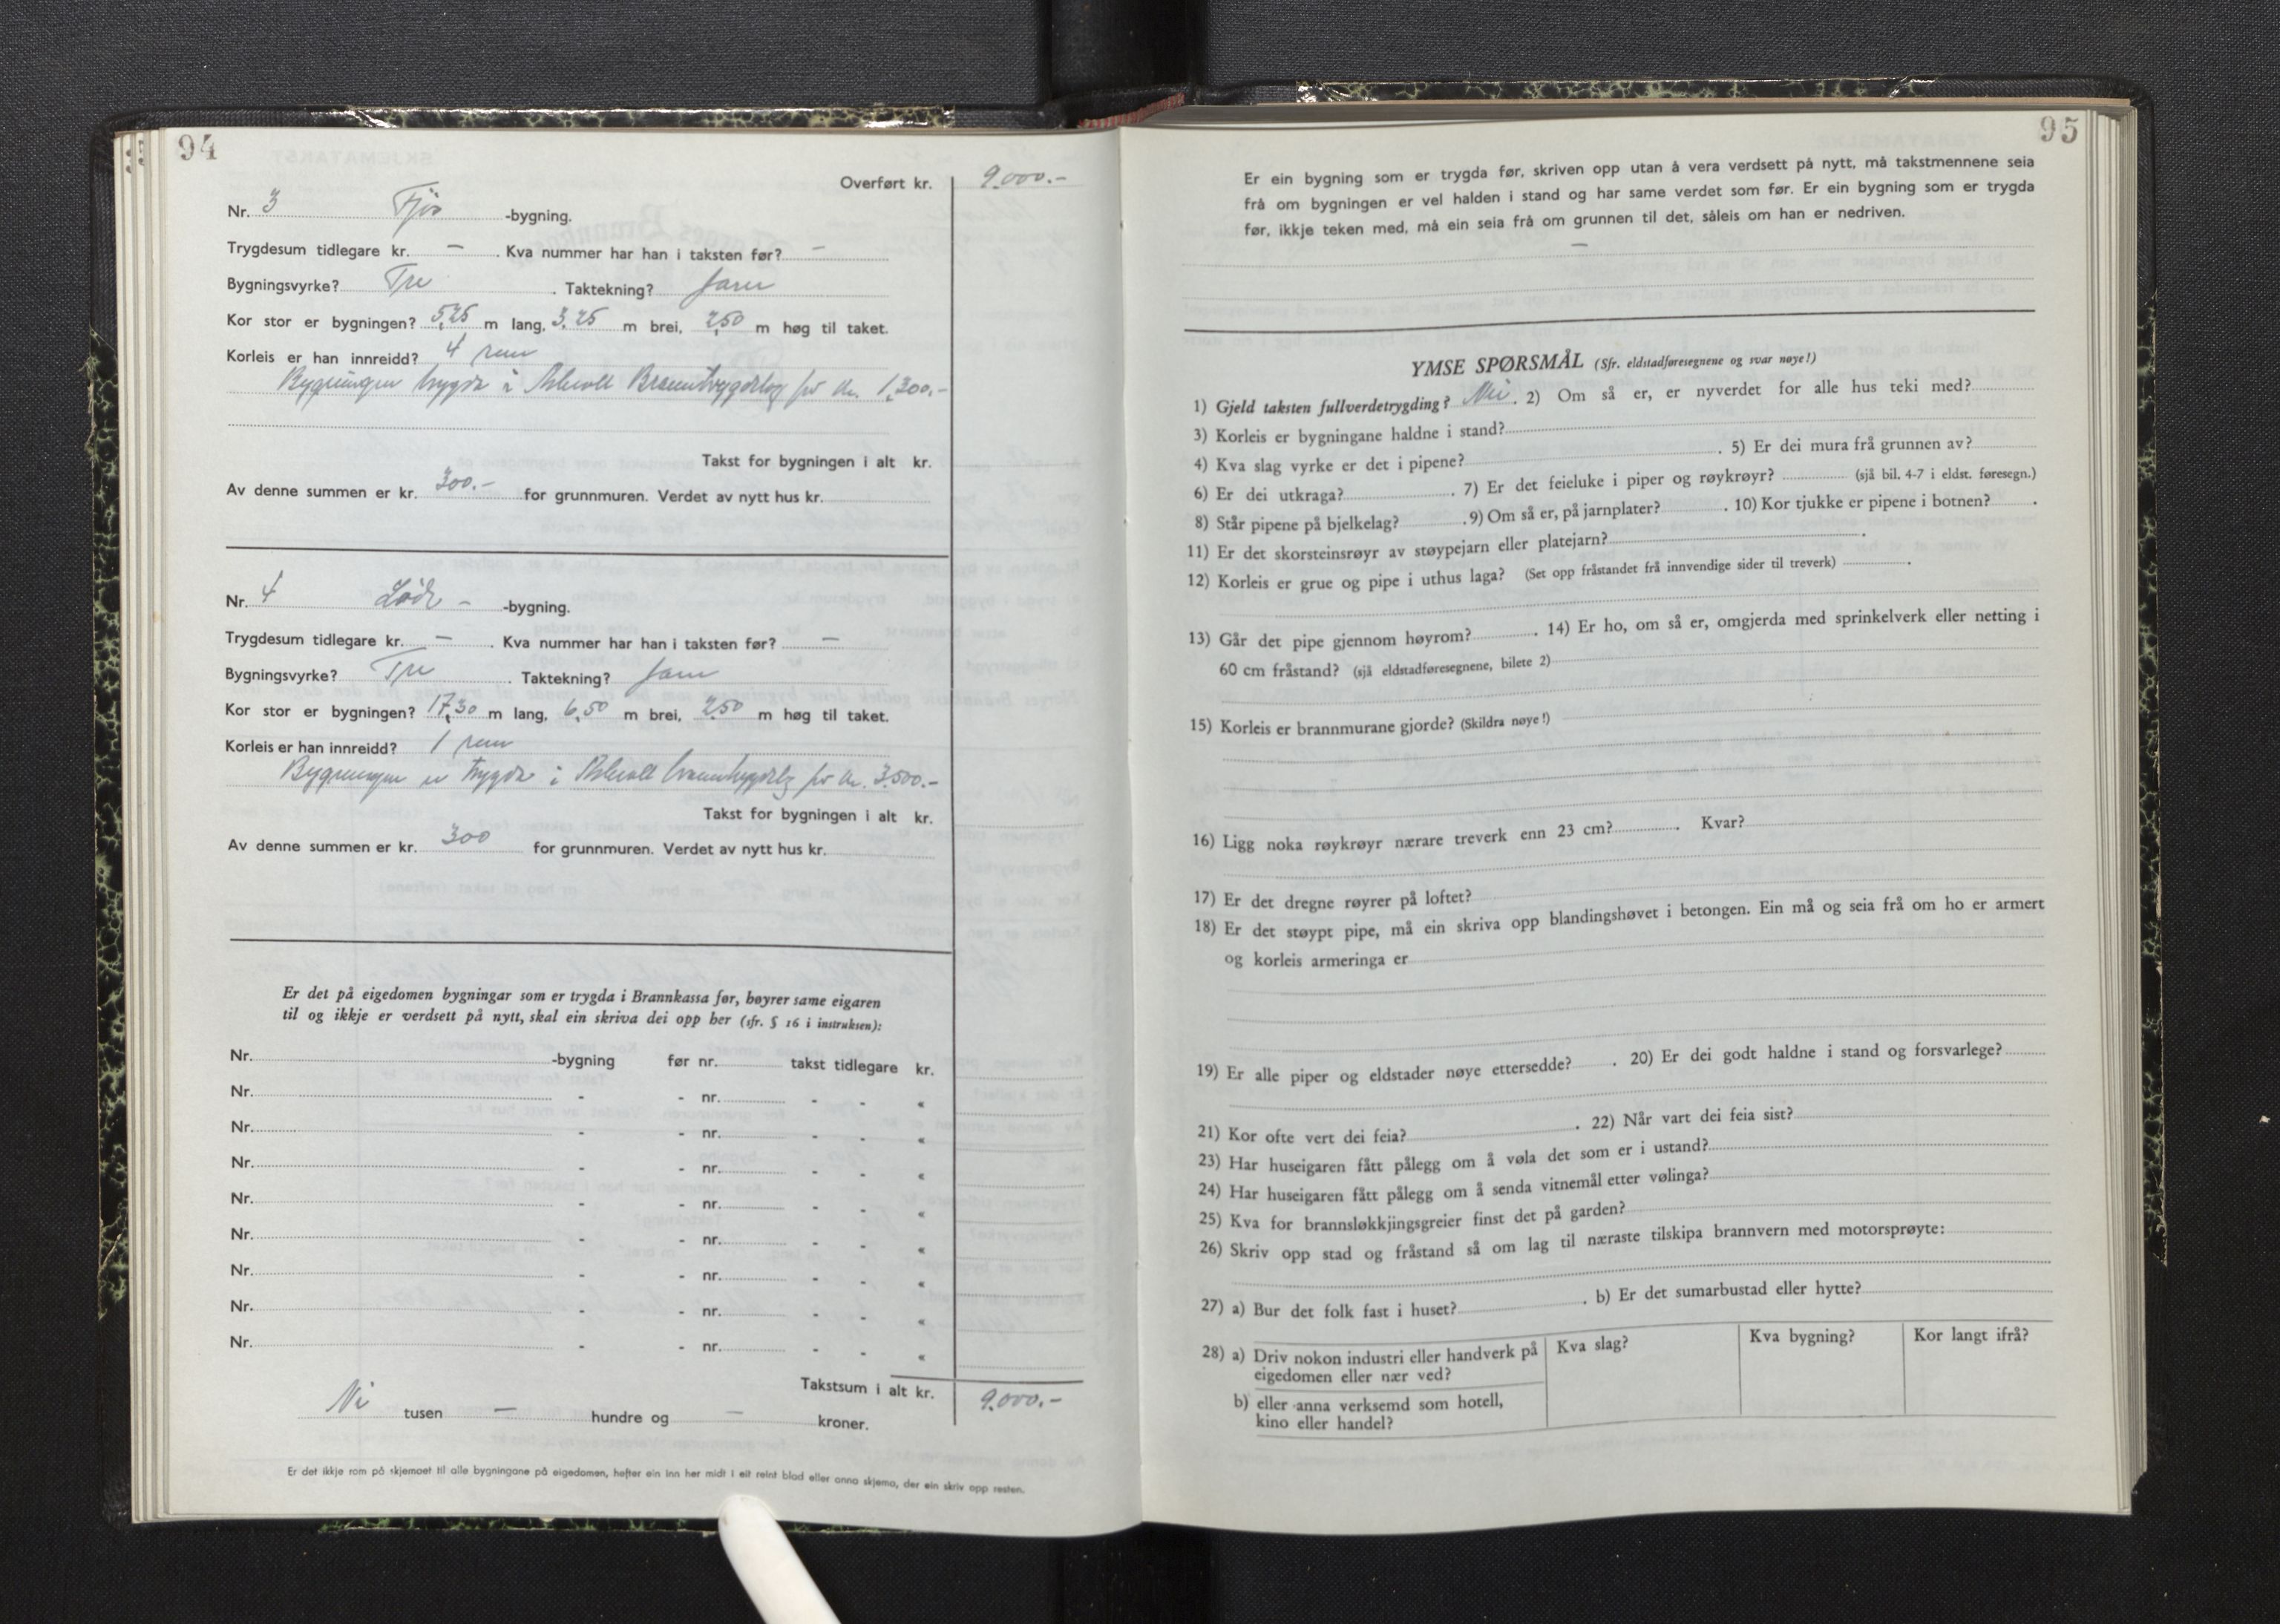 94
Overført kr. 9.000.-
Nr. 3 Fjøs -bygning.
Trygdesum tidlegare kr. — . Kva nummer har han i taksten før? —
Bygningsvyrke? Tre . Taktekning? Jarn
Kor stor er bygningen? 5,25 m lang, 3,25 m brei, 2,50 m høg til taket.
Korleis er han innreidd? 4 rum
Bygningen trygda i Branntrygdelag for kr. 1.300.-
Takst for bygningen i alt kr.
Av denne summen er kr. 300.- for grunnmuren. Verdet av nytt hus kr.
Nr. 4 Løde - -bygning.
Trygdesum tidlegare kr. — . Kva nummer har han i taksten før? —
Bygningsvyrke? Tre . Taktekning? Jarn
Kor stor er bygningen? 17,30 m lang, 6,50 m brei, 2,50 m høg til taket.
Korleis er han innreidd? 1 rum
Bygningen er trygda i branntrygdelag for kr. 3.500.-
Takst for bygningen i alt kr.
Av denne summen er kr. 300 for grunnmuren. Verdet av nytt hus kr.
Er det på eigedomen bygningar som er trygda i Brannkassa før, høyrer same eigaren
til og ikkje er verdsett på nytt, skal ein skriva dei opp her (sfr. § 16 i instruksen):
Nr. -bygning før nr. takst tidlegare kr.
Nr. - - nr. - - «
Nr. - - nr. - - «
Nr. - - nr. - - «
Nr. - - nr. - - «
Nr. - - nr. - - «
Nr. - - nr. - - «
Nr. - - nr. - - «
Nr. - - nr. - - «
Takstsum i alt kr. 9.000.-
Ni tusen — hundre og — kroner.
Er det ikkje rom på skjemaet til alle bygningane på eigedomen, hefter ein inn her midt i eit reint blad eller anna skjema, der ein skriv opp resten.
95
Er ein bygning som er trygda før, skriven opp utan å vera verdsett på nytt, må takstmennene seia
frå om bygningen er vel halden i stand og har same verdet som før. Er ein bygning som er trygda
før, ikkje teken med, må ein seia frå om grunnen til det, såleis om han er nedriven.
—
YMSE SPØRSMÅL (Sfr. eldstadføresegnene og svar nøye!)
1) Gjeld taksten fullverdetrygding? Nei . 2) Om så er, er nyverdet for alle hus teki med?
3) Korleis er bygningane haldne i stand?
4) Kva slag vyrke er det i pipene? . 5) Er dei mura frå grunnen av?
6) Er dei utkraga? . 7) Er det feieluke i piper og røykrøyr? (sjå bil. 4-7 i eldst. føresegn.)
8) Står pipene på bjelkelag? . 9) Om så er, på jarnplater? . 10) Kor tjukke er pipene i botnen? .
11) Er det skorsteinsrøyr av støypejarn eller platejarn? .
12) Korleis er grue og pipe i uthus laga? (Set opp fråstandet frå innvendige sider til treverk) .
13) Går det pipe gjennom høyrom? . 14) Er ho, om så er, omgjerda med sprinkelverk eller netting i
60 cm fråstand? (sjå eldstadføresegnene, bilete 2)
15) Korleis er brannmurane gjorde? (Skildra nøye!)
16) Ligg noka røykrøyr nærare treverk enn 23 cm? . Kvar?
17) Er det dregne røyrer på loftet?
18) Er det støypt pipe, må ein skriva opp blandingshøvet i betongen. Ein må og seia frå om ho er armert
og korleis armeringa er
19) Er alle piper og eldstader nøye ettersedde? . 20) Er dei godt haldne i stand og forsvarlege?
21) Kor ofte vert dei feia? . 22) Når vart dei feia sist?
23) Har huseigaren fått pålegg om å vøla det som er i ustand?
24) Har huseigaren fått pålegg om å senda vitnemål etter vølinga?
25) Kva for brannsløkkjingsgreier finst det på garden?
26) Skriv opp stad og fråstand så om lag til næraste tilskipa brannvern med motorsprøyte:
27) a) Bur det folk fast i huset? . b) Er det sumarbustad eller hytte?
28) a) Driv nokon industri eller handverk på
eigedomen eller nær ved?
Kva slag? Kva bygning? Kor langt ifrå?
b) eller anna verksemd som hotell,
kino eller handel?